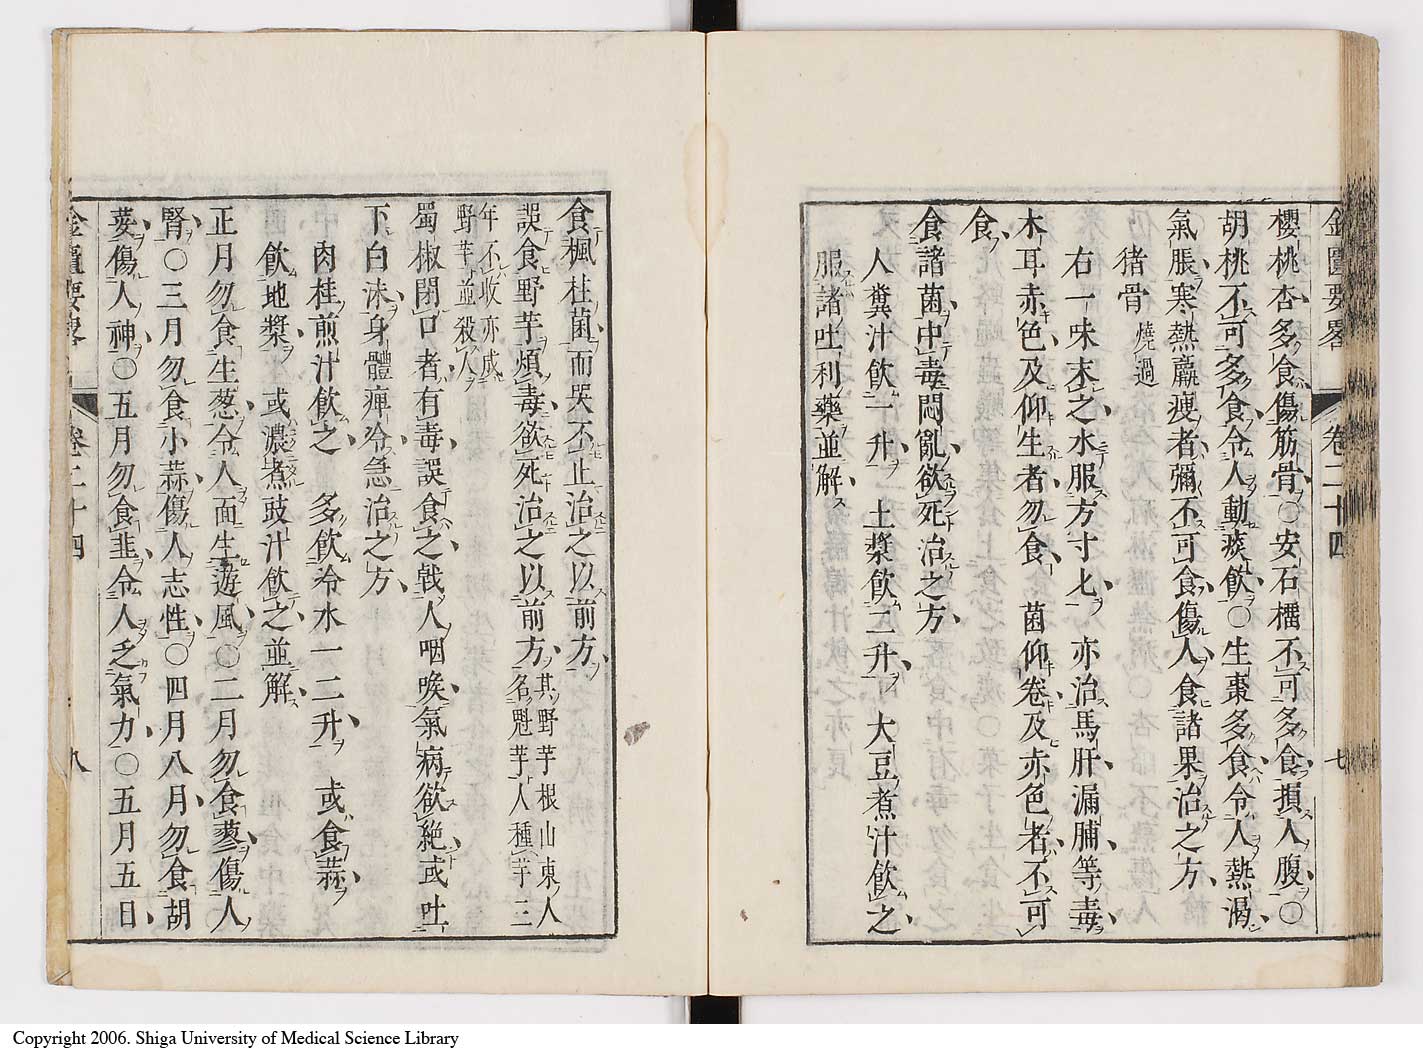 金匱要畧 卷二十四 七
櫻桃杏多食傷筋骨○安石榴不可多食損人腹○
胡桃不可多食令人動痰飲○生棗多食令人熱渴
氣脹寒熱羸瘦者彌不可食傷人食諸果治之方
猪骨燒過
右一味末之水服方寸匕亦治馬肝漏脯等毒
木耳赤色及仰生者勿食 菌仰卷及赤色者不可
食
食諸菌中毒悶亂欲死治之方
人糞汁飲一升 土漿飲二升 大豆煮汁飲之
服諸吐利藥並解
食楓柱菌而哭不止治之以前方
誤食野芋煩毒欲死治之以前方其野芋根山東人名魁芋人種芋三
年不收亦成野芋並殺人
蜀椒閉口者有毒誤食之戟人咽喉氣病欲絶或吐
下白沫身體痺冷急治之方
肉桂煎汁飲之 多飲冷水一二升 或食蒜
飲地漿 或濃煮豉汁飲之並解
正月勿食生葱令人面生遊風○二月勿食蓼傷人
腎○三月勿食小蒜傷人志性○四月八月勿食胡
荽傷人神○五月勿食韭令人乏氣力○五月五日
金匱要畧 卷二十四 八
Copyright 2006. Shiga University of Medical Science Library